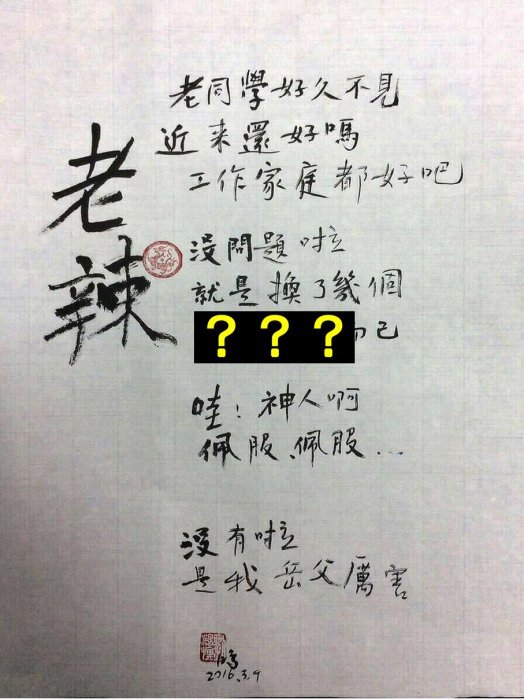 老辣
老同學好久不見
近来還好嗎
工作家庭都好吧
沒問題啦
就是換了幾個
？？？
已
哇！神人啊
佩服、佩服...
沒有啦
是我岳父厲害
2016.3.9